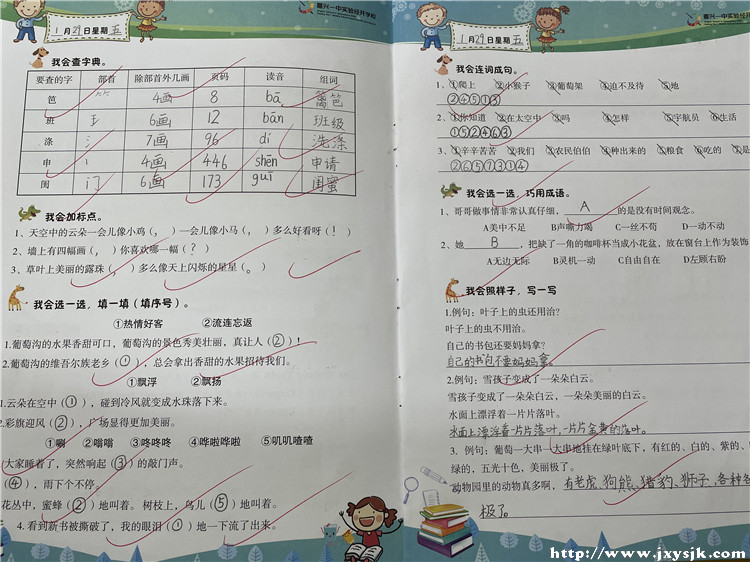 1月29日星期五
嘉兴一中实验经开学校
我会查字典。
要查的字 部首 除部首外几画 页码 读音 组词
笆 ⺮ 4画 8 bā 篱笆
班 王 6画 12 bān 班级
涤 氵 7画 96 dí 洗涤
申 丨 4画 446 shēn 申请
闺 门 6画 173 guī 闺蜜
我会加标点。
1、天空中的云朵一会儿像小鸡(,)一会儿像小马(,)多么好看呀(!)
2、墙上有四幅画(,)你喜欢哪一幅(?)
3、草叶上美丽的露珠(,)多么像天上闪烁的星星(。)
我会选一选,填一填(填序号)。
①热情好客 ②流连忘返
1.葡萄沟的水果香甜可口,葡萄沟的景色秀美壮丽,真让人(②)!
2.葡萄沟的维吾尔族老乡(①),总会拿出香甜的水果招待我们。
①飘浮 ②飘扬
1.云朵在空中(①),碰到冷风就变成水珠落下来。
2.彩旗迎风(②),广场显得更加美丽。
①唰 ②嗡嗡 ③咚咚咚 ④哗啦哗啦 ⑤叽叽喳喳
大家睡着了,突然响起(③)的敲门声。
(④),雨下个不停。
花丛中,蜜蜂(②)地叫着。树枝上,鸟儿(⑤)地叫着。
4.看到新书被撕破了,我的眼泪(①)地一下流了出来。
1月29日星期五
嘉兴一中实验经开学校
我会连词成句。
1、①爬上 ②小猴子 ③葡萄架 ④迫不及待 ⑤地
②④⑤①③
2、①你知道 ②在太空中 ③吗 ④怎样 ⑤宇航员 ⑥生活
①⑤②④⑥③
3、①辛辛苦苦 ②我们 ③农民伯伯 ④种出来的 ⑤粮食 ⑥吃的 ⑦是
②⑥⑤⑦③①④
我会选一选,巧用成语。
1、哥哥做事情非常认真仔细, A 的是没有时间观念。
A美中不足 B声嘶力竭 C一丝不苟 D一动不动
2、她 B ,把缺了一角的咖啡杯当成小花盆,放在窗台上作为装饰
A无边无际 B灵机一动 C自由自在 D左顾右盼
我会照样子,写一写
1.例句:叶子上的虫还用治?
叶子上的虫不用治。
自己的书包还要妈妈拿?
自己的书包不要妈妈拿。
2.例句:雪孩子变成了一朵朵白云。
雪孩子变成了一朵朵白云,一朵朵美丽的白云。
水面上漂浮着一片片落叶。
水面上漂浮着一片片落叶,一片片金黄的落叶。
3. 例句:葡萄一大串一大串地挂在绿叶底下,有红的、白的、紫的、
绿的,五光十色,美丽极了。
动物园里的动物真多啊,有老虎、狗熊、猎豹、狮子,各种各
极了。
http://www.jxysjk.com